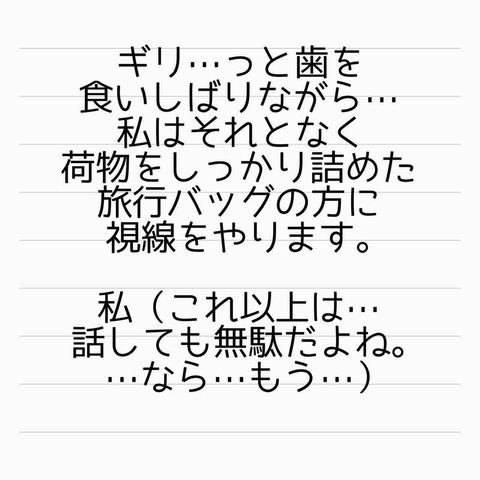 ギリ…っと歯を
食いしばりながら…
私はそれとなく
荷物をしっかり詰めた
旅行バッグの方に
視線をやります。
私（これ以上は…
話しても無駄だよね。
…なら…もう…）